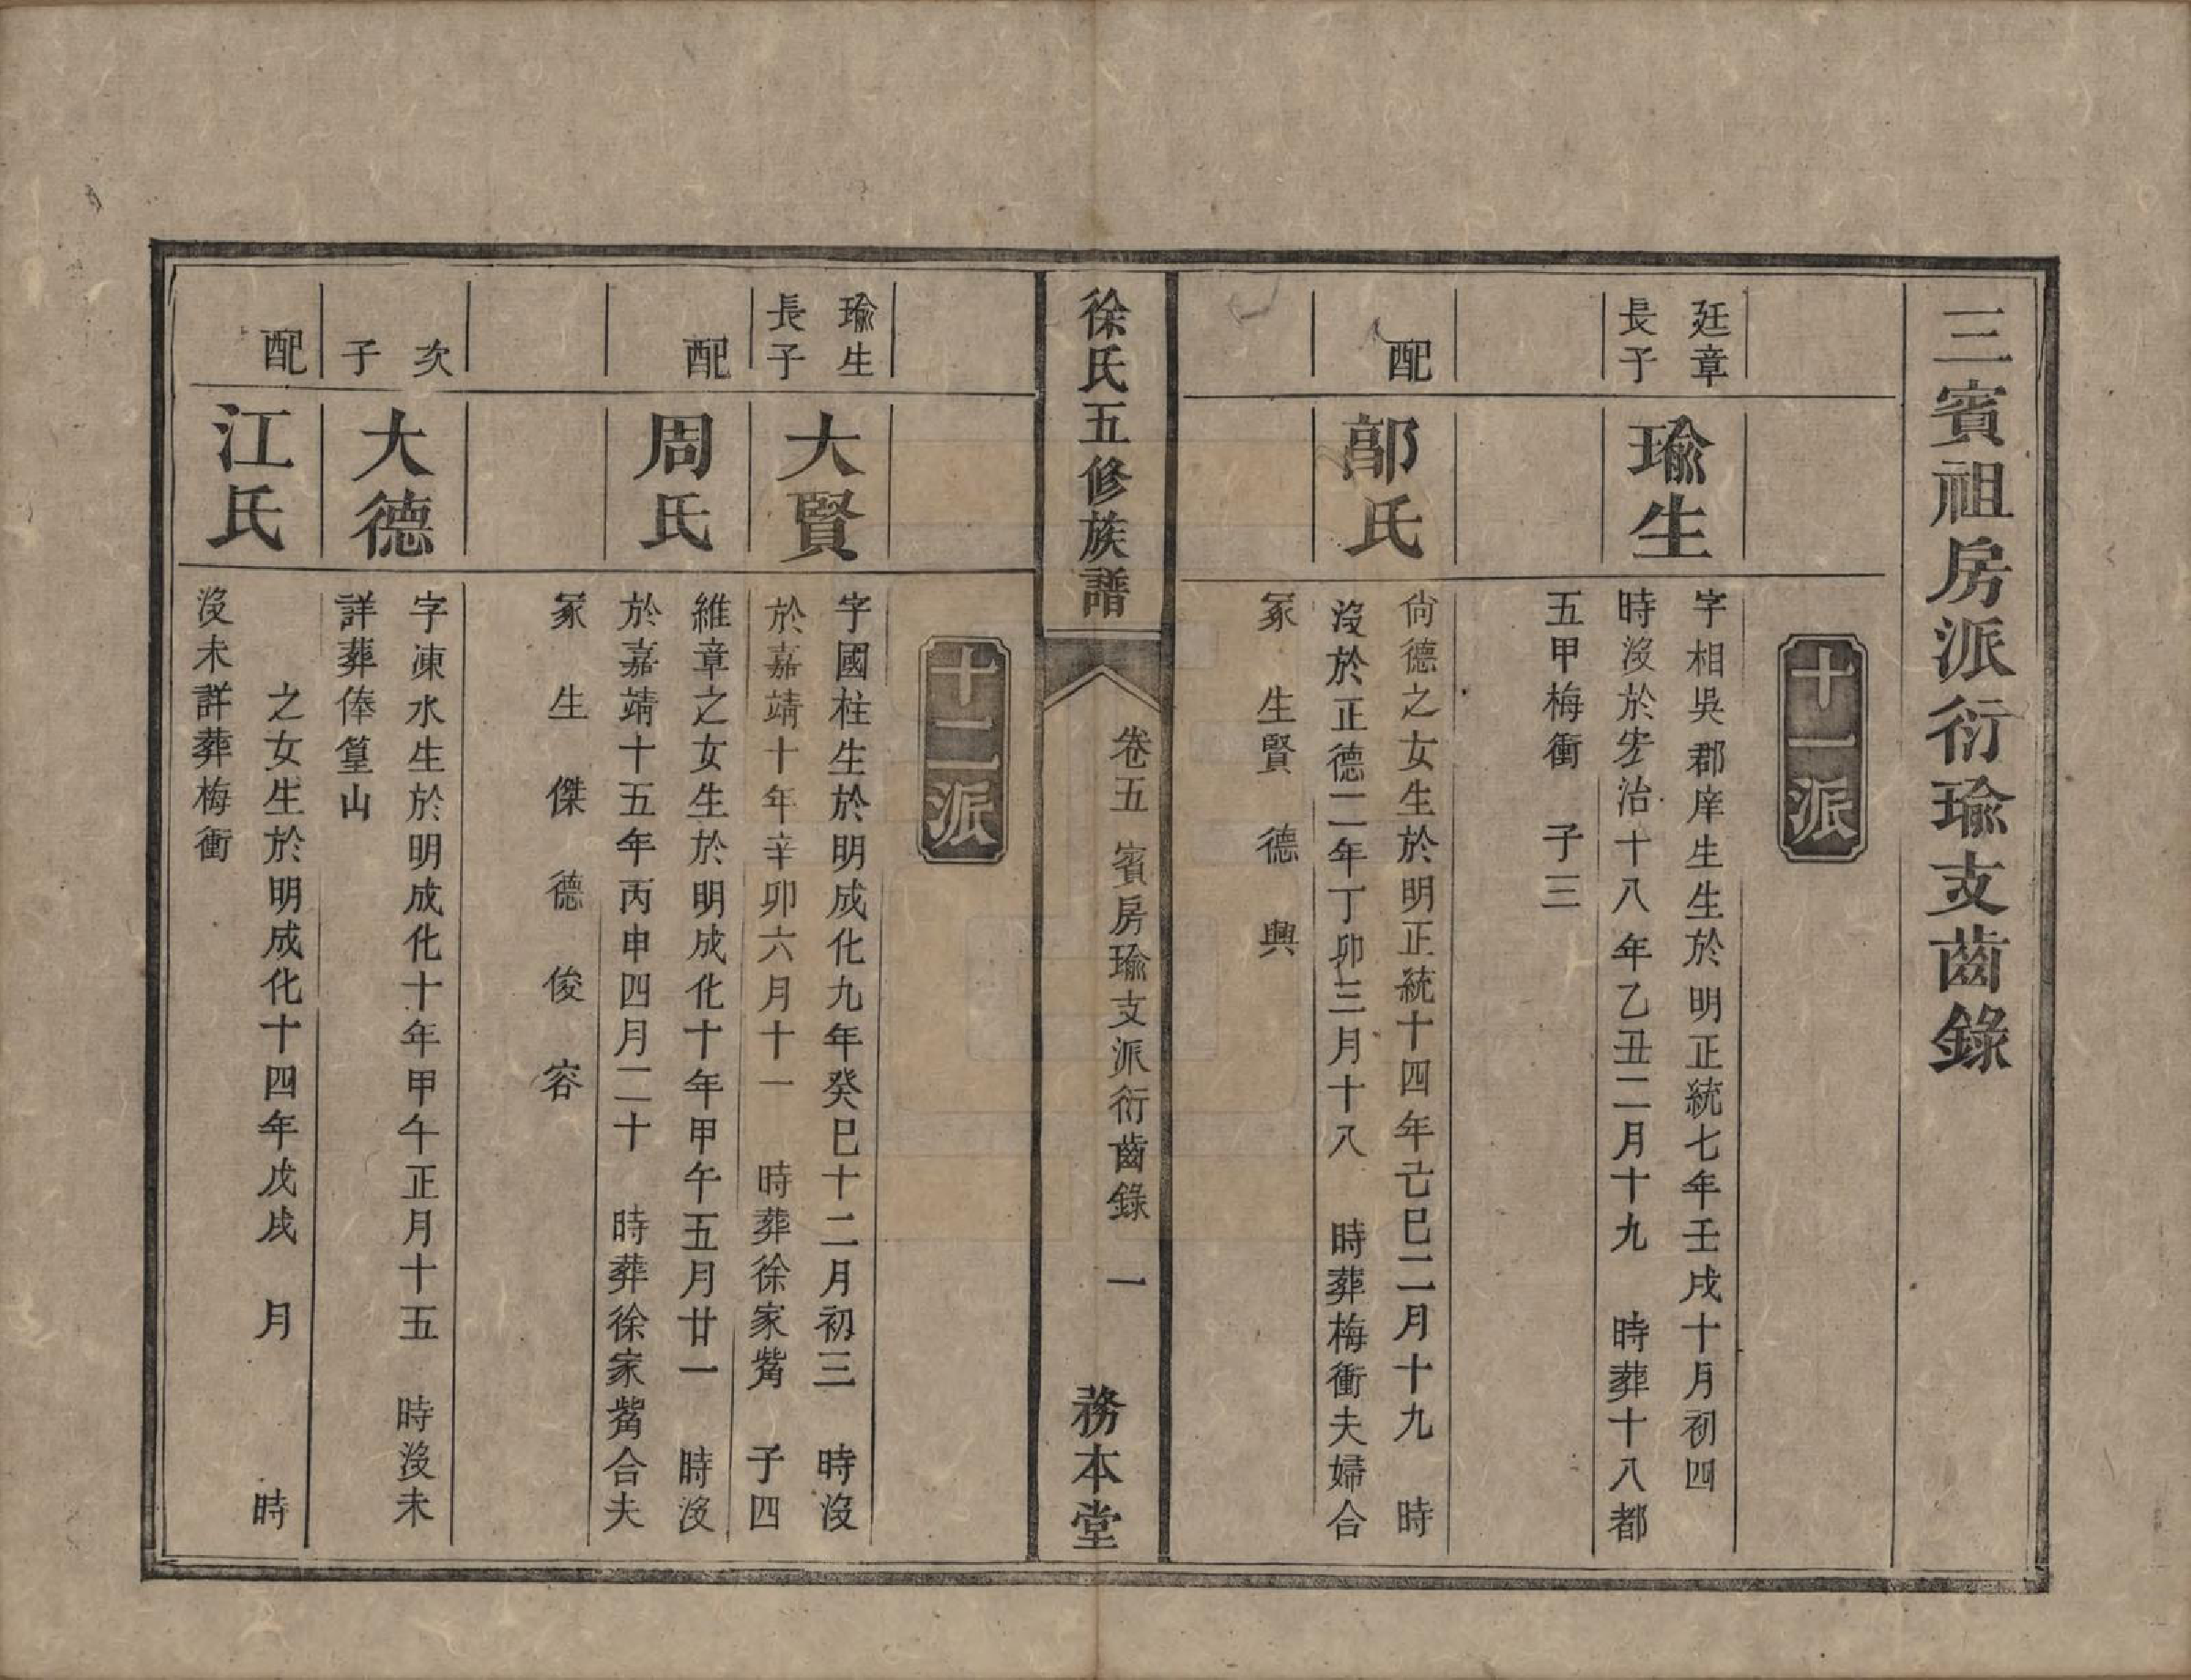 三賓祖房派衍瑜支齒錄
十一派
廷章
長子
瑜生
字相吳郡庠生生於明正統七年壬戌十月初四
時沒於宏治十八年乙丑二月十九 時葬十八都
五甲梅衝 子三
配
鄔氏
尙德之女生於明正統十四年己巳二月十九 時
沒於正德二年丁卯三月十八 時葬梅衝夫婦合
冢 生賢 德 興
徐氏五修族譜
卷五 賓房瑜支派衍齒錄 一
務本堂
十二派
瑜生
長子
大賢
字國柱生於明成化九年癸巳十二月初三 時沒
於嘉靖十年辛卯六月十一 時葬徐家觜 子四
配
周氏
維章之女生於明成化十年甲午五月廿一 時沒
於嘉靖十五年丙申四月二十 時葬徐家觜合夫
冢 生 傑 德 俊 容
次
子
大德
字涑水生於明成化十年甲午正月十五 時沒未
詳葬俸篁山
配
江氏
之女生於明成化十四年戊戌 月 時
沒未詳葬梅衝